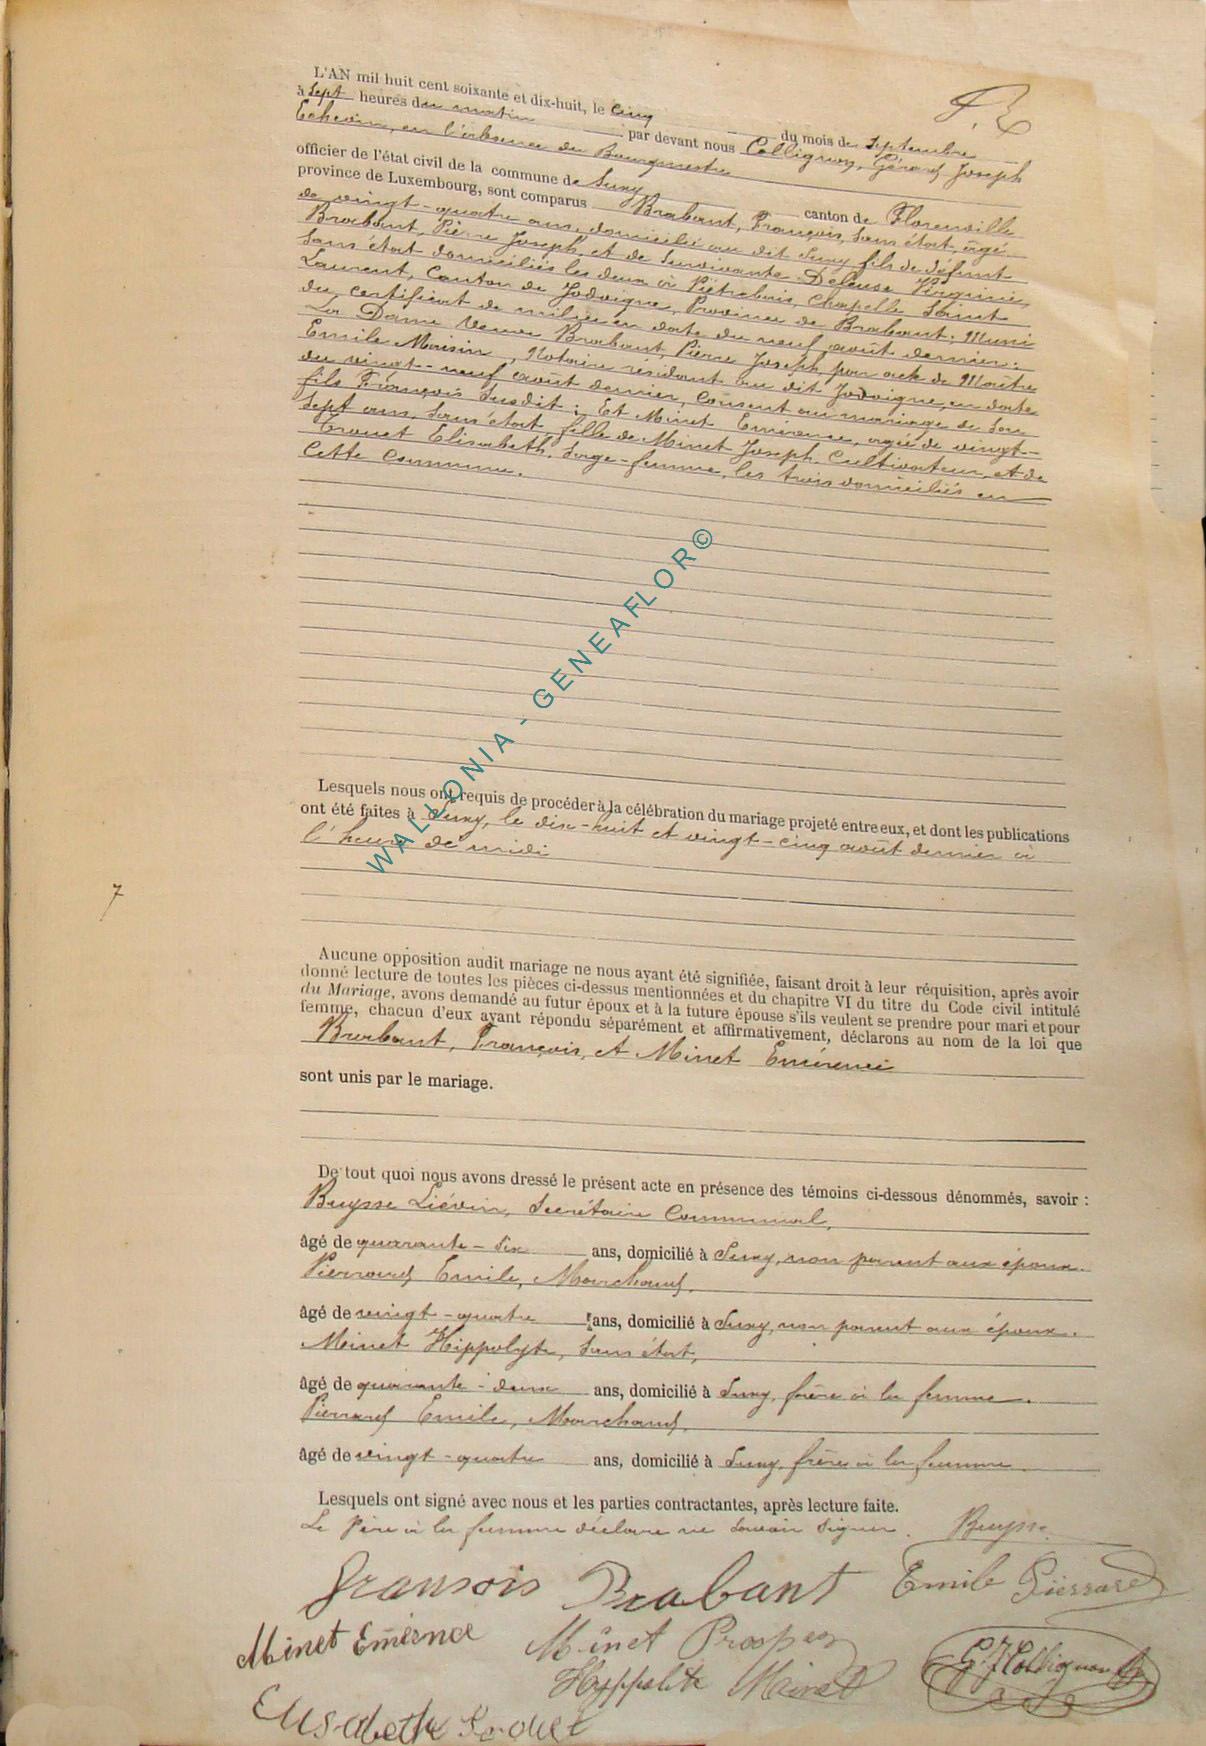 L'AN mil huit cent soixante et dix-huit, le cinq du mois de Septembre
à Sept heures du matin par devant nous Collignon, Gérard Joseph
Echevin, en l'absence du Bourgmestre
officier de l'état civil de la commune de Suxy canton de Florenville
province de Luxembourg, sont comparus Brabant, François, sans état, âgé
de vingt-quatre ans, domicilié au dit Suxy fils de défunt
Brabant, Pierre Joseph et de Survivante Deleuse Virginie,
Sans état domiciliés les deux à Piétrebais, Chapelle Saint
Laurent, Canton de Jodoigne, Province de Brabant; Muni
du certificat de milice en date du neuf août dernier;
La Dame Veuve Brabant, Pierre Joseph, par acte de Maître
Emile Moisin, Notaire résidant au dit Jodoigne, en date
du vingt-neuf août dernier, consent au mariage de Son
fils François Susdit; Et Minet Emérence, agée de vingt-
Sept ans, Sans état, fille de Minet Joseph, Cultivateur, et de
Trouet Elisabeth, Sage-femme, les trois domiciliés en
Cette commune.
Lesquels nous ont requis de procéder à la célébration du mariage projeté entre eux, et dont les publications
ont été faites à Suxy, le dix-huit et vingt-cinq août dernier à
l'heure de midi
Aucune opposition audit mariage ne nous ayant été signifiée, faisant droit à leur réquisition, après avoir
donné lecture de toutes les pièces ci-dessus mentionnées et du chapitre VI du titre du Code civil intitulé
du Mariage, avons demandé au futur époux et à la future épouse s'ils veulent se prendre pour mari et pour
femme, chacun d'eux ayant répondu séparément et affirmativement, déclarons au nom de la loi que
Brabant, François, et Minet Emérence
sont unis par le mariage.
De tout quoi nous avons dressé le présent acte en présence des témoins ci-dessous dénommés, savoir :
Buysse Liévin, Secrétaire Communal,
âgé de quarante-six ans, domicilié à Suxy, non parent aux époux.
Pierrard Emile, Marchand,
âgé de vingt-quatre ans, domicilié à Suxy, non parent aux époux.
Minet Hippolyte, Sans état,
âgé de quarante-deux ans, domicilié à Suxy, frère à la femme.
Pierrard Emile, Marchand,
âgé de vingt-quatre ans, domicilié à Suxy, frère à la femme
Lesquels ont signé avec nous et les parties contractantes, après lecture faite.
Le Père à la femme déclare ne Savoir Signer. Buysse
7
Fransois Brabant Emile Pierrard
Minet Emérence Minet Prosper
Hyppolite Minet
G. J. Collignon
Elisabethe
WALLONIA - GENEAFLOR©